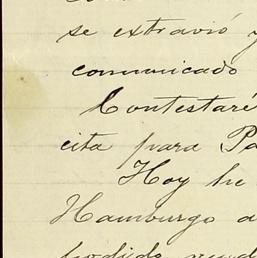 se extravió y
comunicado
Contestaré
cita para Pa
Hoy he
Hamburgo a